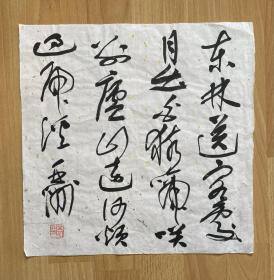 东林送客處
月出白猿啼笑
别廬山远何烦
过虎溪